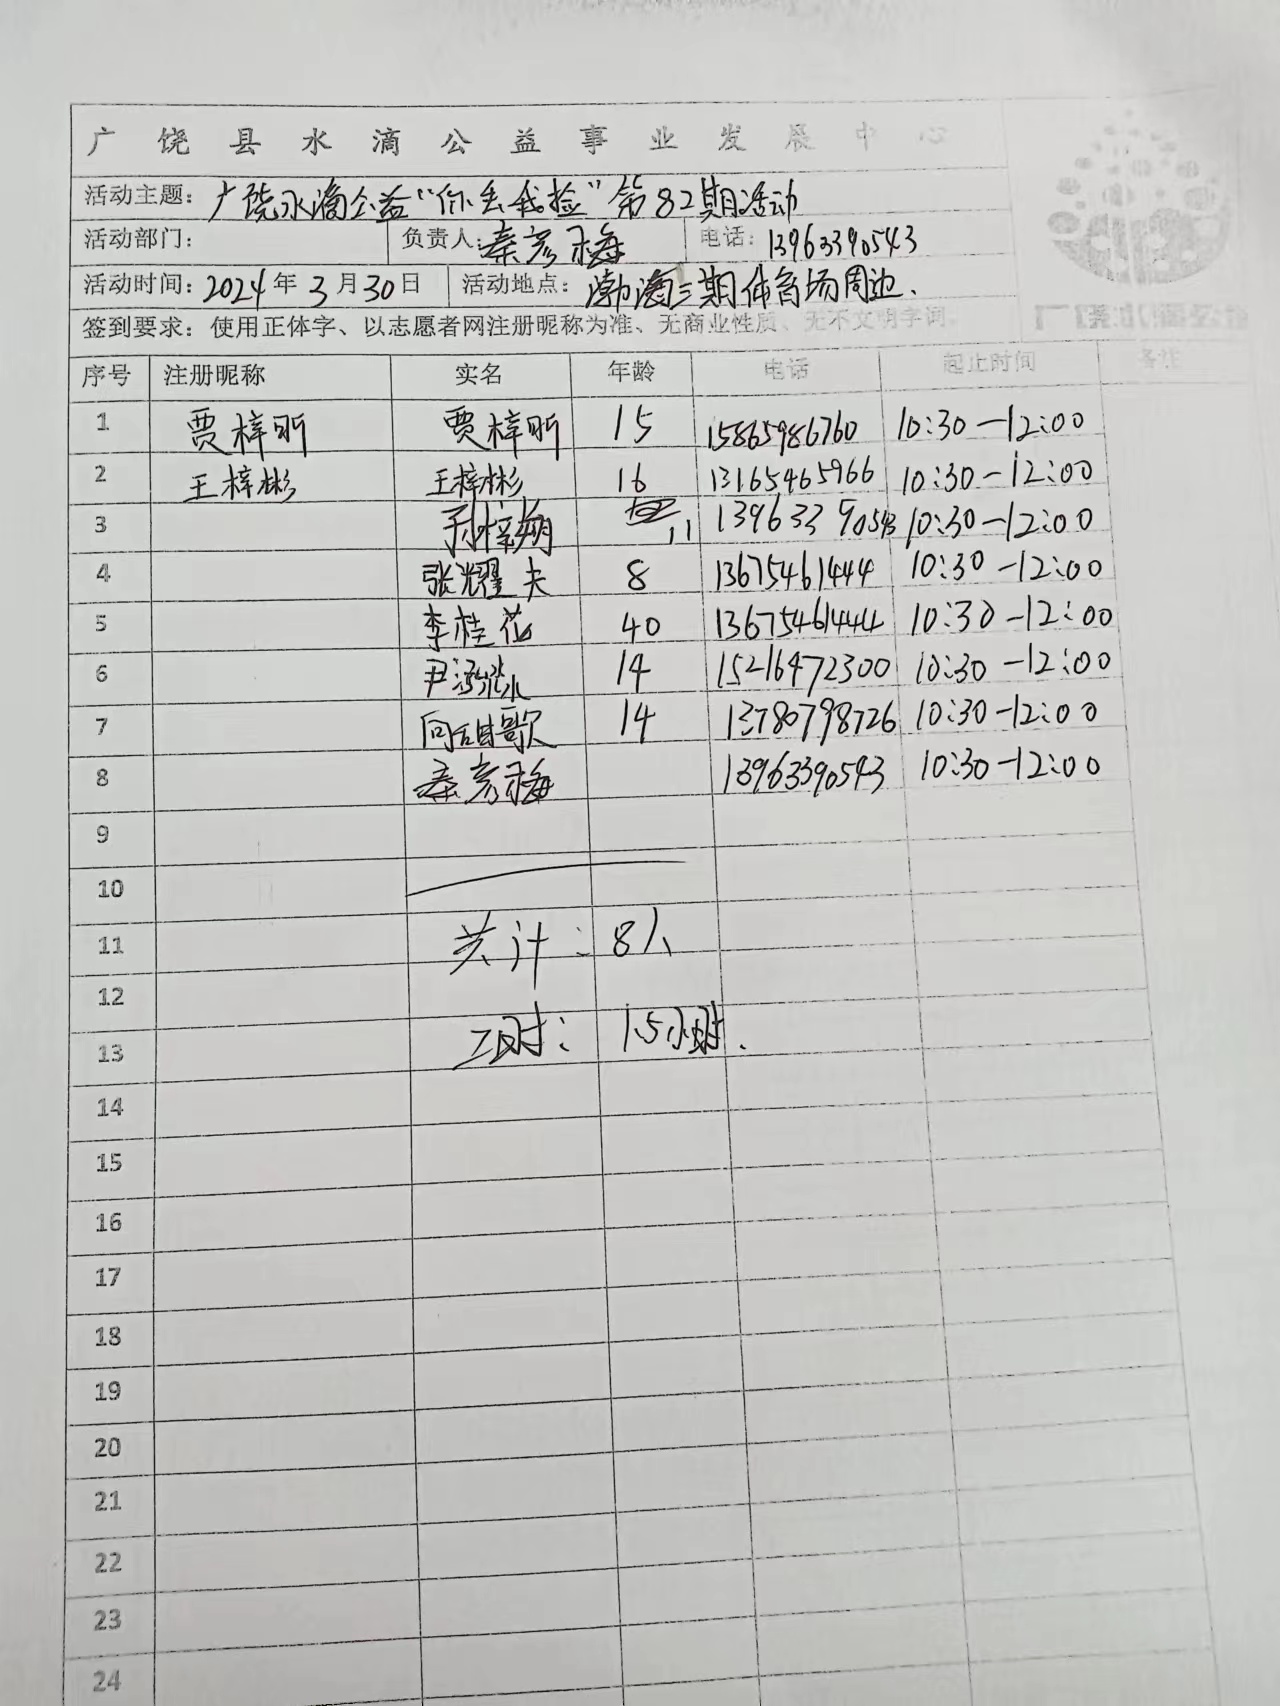 广饶县水滴公益事业发展中心
活动主题：广饶水滴公益“你丢我捡”第82期活动
活动部门： 负责人：秦彦梅 电话：13963390543
活动时间：2024年3月30日 活动地点：渤海三期体育场周边.
签到要求：使用正体字、以志愿者网注册昵称为准、无商业性质、无不文明字词。
序号 注册昵称 实名 年龄 电话 起止时间 备注
1 贾梓昕 贾梓昕 15 15865986760 10:30—12:00
2 王梓彬 王梓彬 16 13165465966 10:30—12:00
3 孙梓翔 11 13963390543 10:30—12:00
4 张耀夫 8 13675461444 10:30—12:00
5 李桂花 40 13675461444 10:30—12:00
6 尹 14 15216472300 10:30—12:00
7 向甜歌 14 13780798726 10:30—12:00
8 秦彦梅 13963390543 10:30—12:00
9
10
11 共计：8人
12
13 工时：1.5小时.
14
15
16
17
18
19
20
21
22
23
24